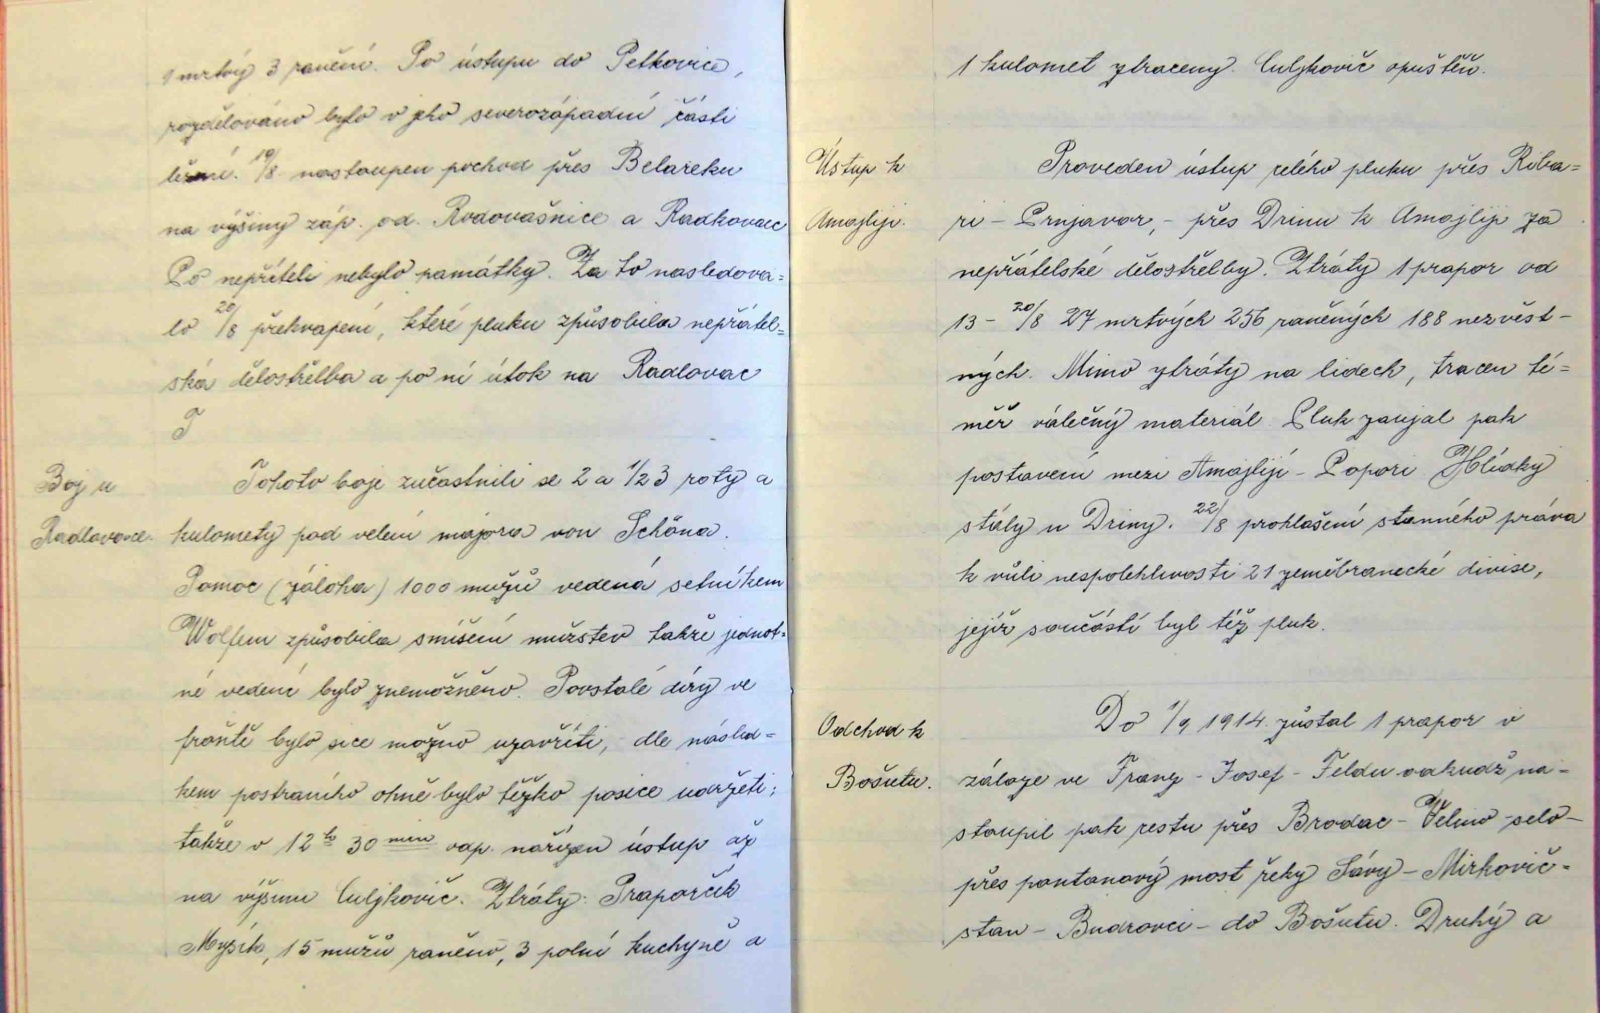 1 mrtvý 3 raněni. Po ústupu do Petkovice,
rozdělováno bylo v jeho severozápadní části
ležení. 19/8. nastoupen pochod přes Belareku
na výšiny záp. od. Rodovašnice a Radkovac
Po nepříteli nebylo památky. Za to nasledova=
lo 20/8 překvapení, které pluku způsobila nepřátel=
ská dělostřelba a po ní útok na Radlovac
T
Boj u
Radlavace.
Tohoto boje zučastnili se 2 a 1/2 3 roty a
kulomety pod velení majora von Schöna.
Pomoc (záloha) 1000 mužů vedená setníkem
Wolfem způsobila smíšení mužstev takže jednot=
né vedení bylo znemožněno. Povstalé díry ve
frontě bylo sice možno uzavříti, dle násled=
kem postraního ohně bylo těžko posice udržeti;
takže v 12 h 30 min odp. nařízen ústup až
na výšinu Culjkovič. Ztráty: Praporčík
Mysík, 15 mužů raněno, 3 polní kuchyně a
1 kulomet ztraceny. Culjkovič opuštěn.
Ústup k
Amajliji.
Proveden ústup celého pluku přes Riba=
ri - Prnjavor, - přes Drinu k Amajliji za
nepřátelské dělostřelby. Ztráty 1 prapor od
13 - 20/8 27 mrtvých 256 raněných 188 nezvěst-
ných. Mimo ztráty na lidech, tracen té=
měř válečný materiál Pluk zaujal pak
postavení mezi Amajlijí - Popori. Hlídky
stály u Driny. 22/8 prohlašení stanného práva
k vůli nespolehlivosti 21 zeměbranecké divise,
jejíž součástí byl též pluk.
Odchod k
Bošutu.
Do 1/9 1914. zůstal 1 prapor v
záloze ve Franz - Josef - Feldu odkudž na-
stoupil pak cestu přes Brodac - Velino selo -
přes pontanový most řeky Sávy - Mirkovič-
stan - Budrovci - do Bošutu. Druhý a